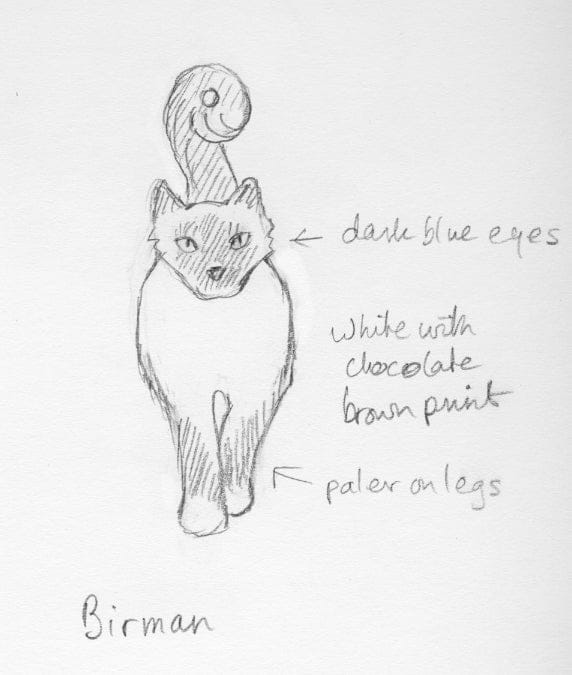 dark blue eyes
white with
chocolate
brown print
paler on legs
Birman